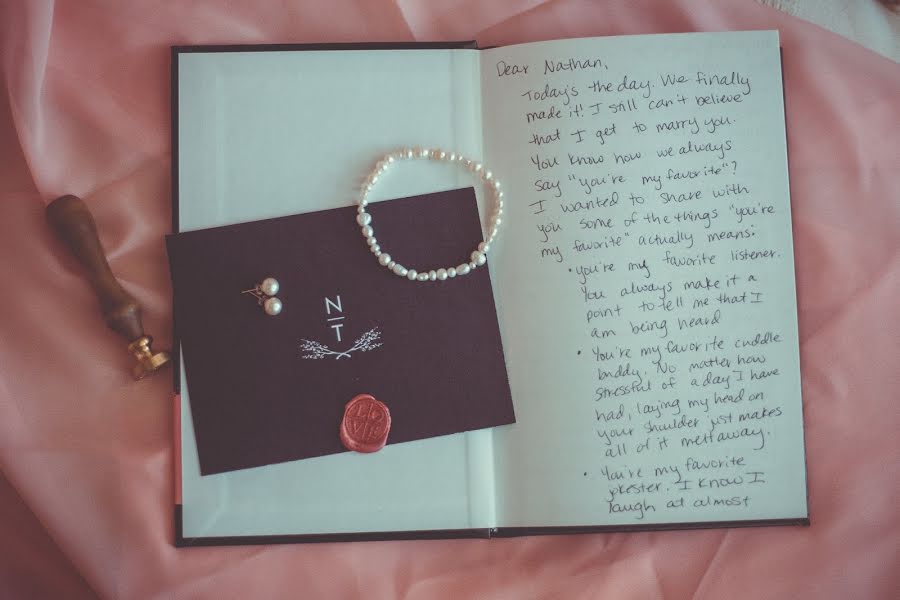 N
T
LO
VE
Dear Nathan,
Today's the day. We finally
made it! I still can't believe
that I get to marry you.
You know how we always
say "you're my favorite"?
I wanted to share with
you some of the things "you're
my favorite" actually means:
• you're my favorite listener.
You always make it a
point to tell me that I
am being heard
• You're my favorite cuddle
buddy. No matter how
stressful of a day I have
had, laying my head on
your shoulder just makes
all of it melt away.
• You're my favorite
jokester. I know I
laugh at almost